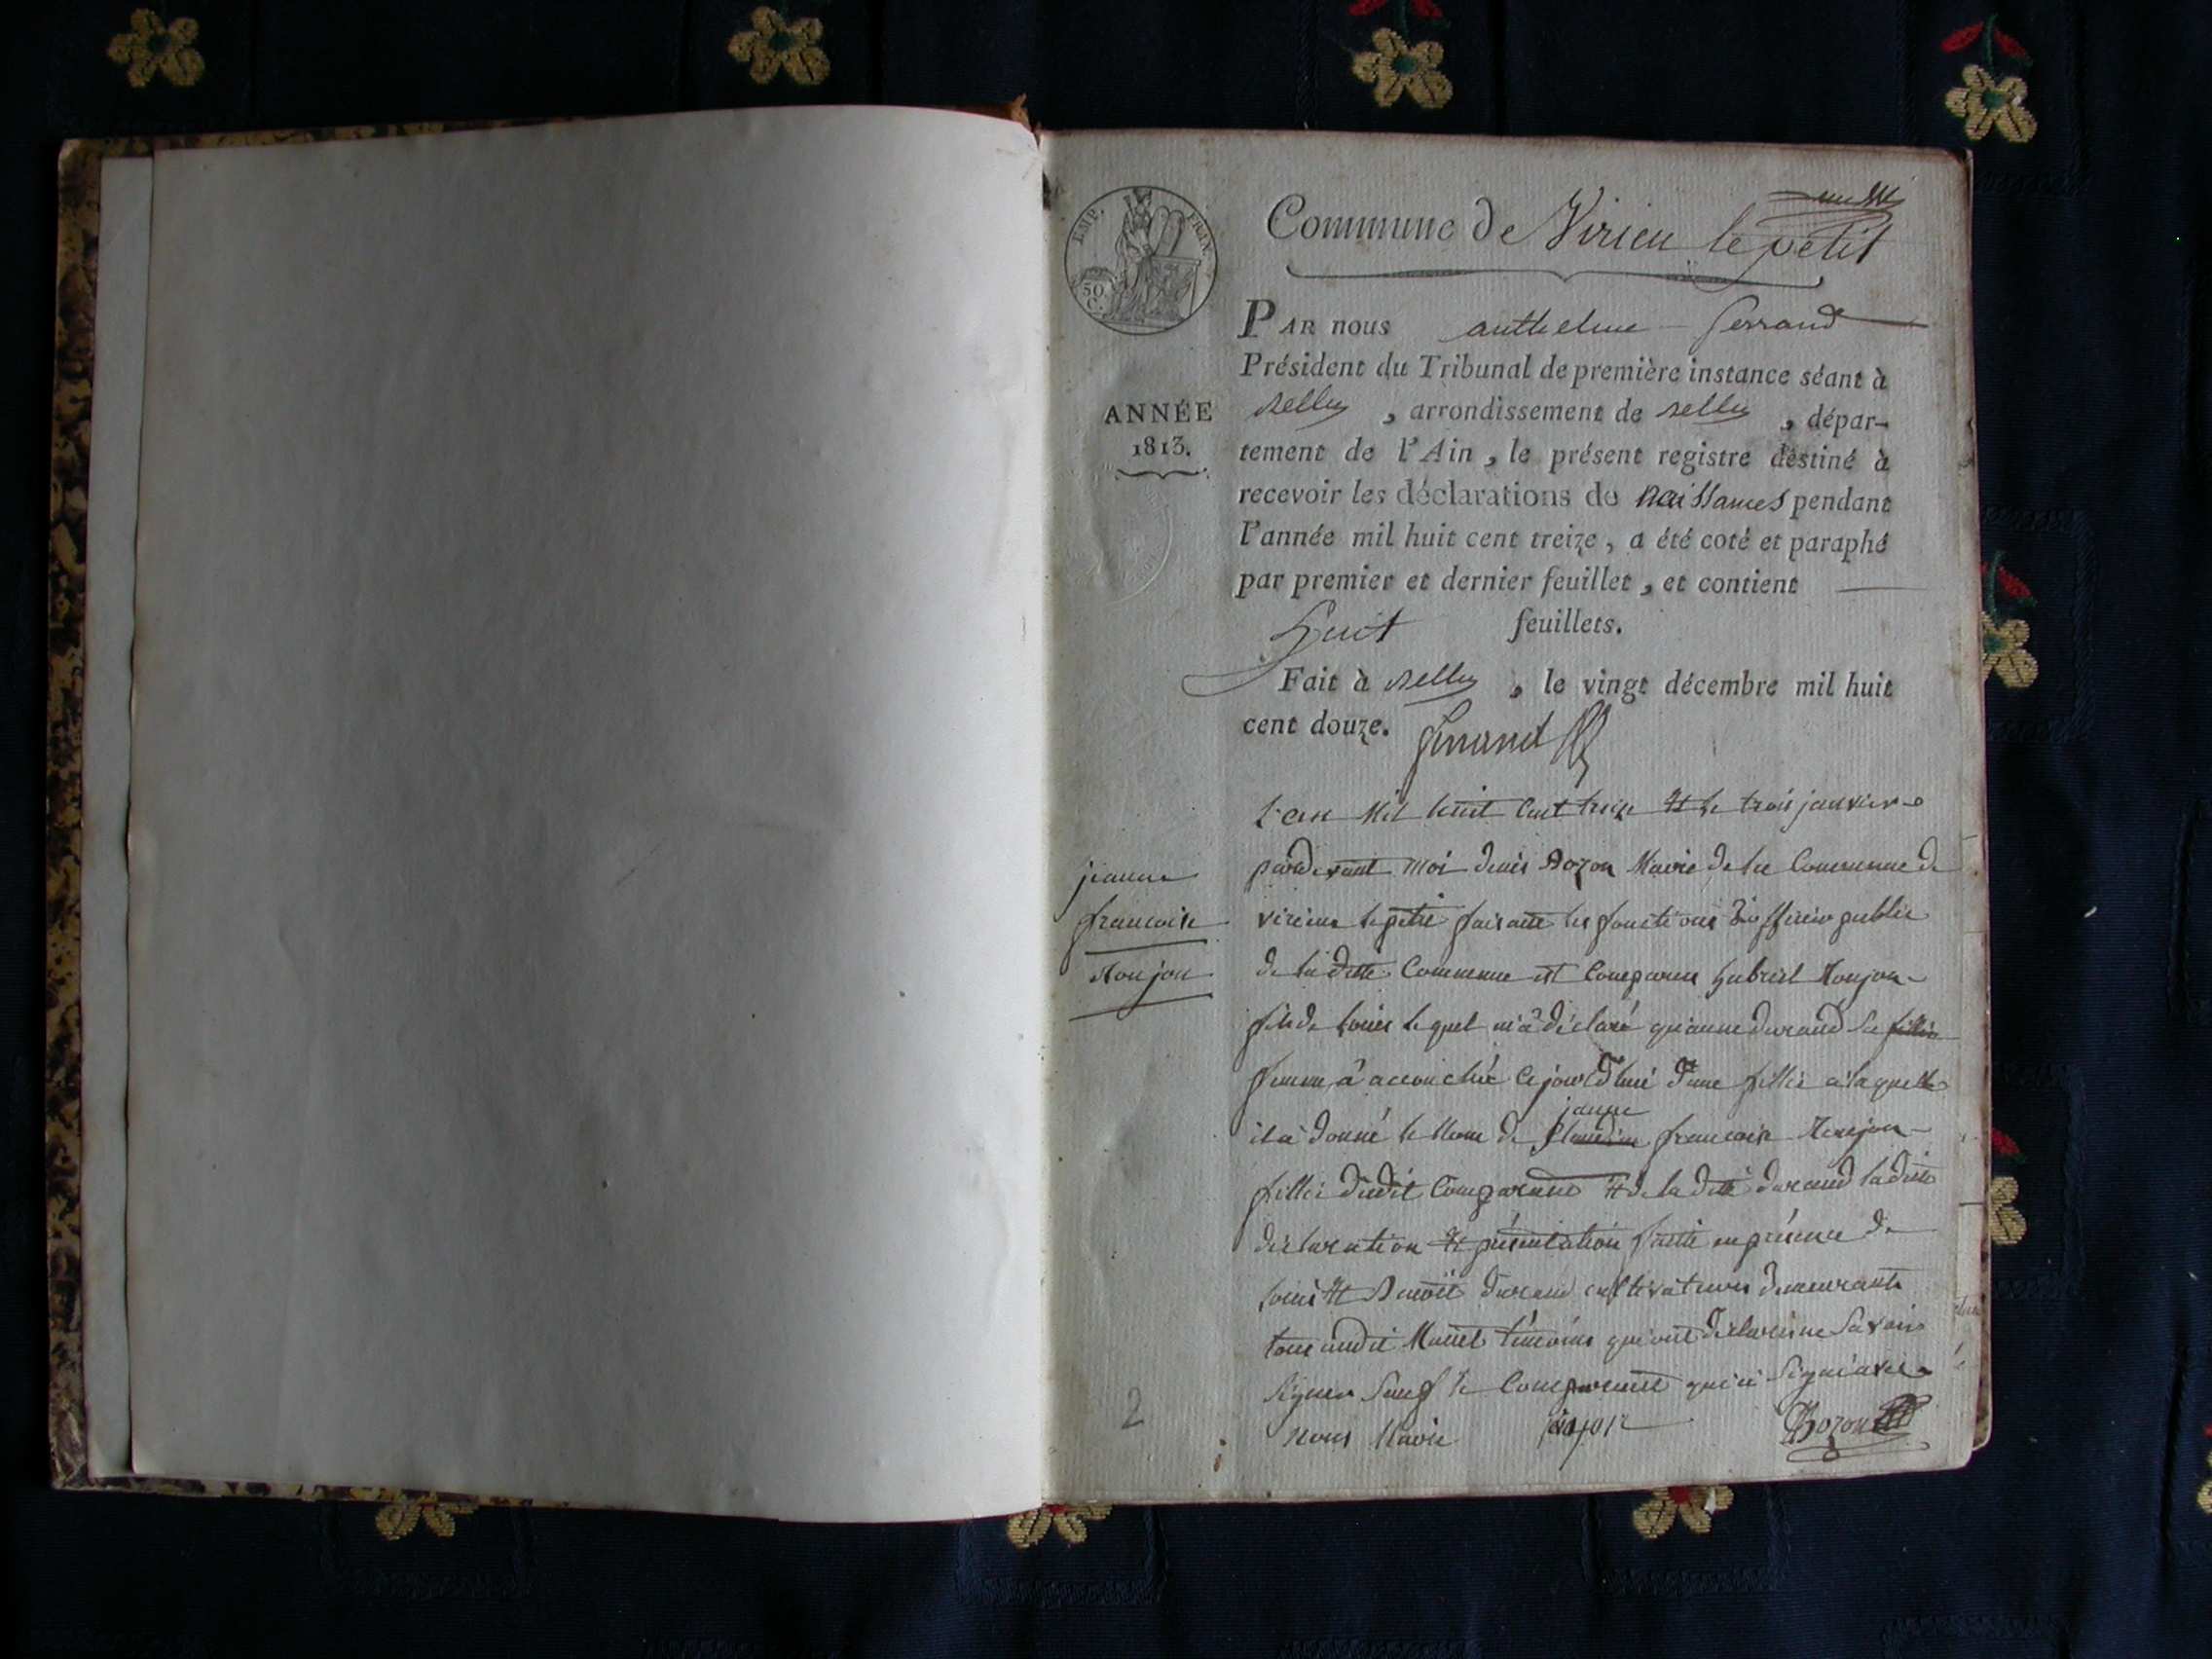 EMP. FRAN.
50 C.
Commune de Virieu le petit
PAR nous anthelme ferrand
Président du Tribunal de première instance séant à
Belley, arrondissement de Belley, dépar-
ANNÉE
1813.
tement de l'Ain, le présent registre destiné à
recevoir les déclarations de naissances pendant
l'année mil huit cent treize, a été coté et paraphé
par premier et dernier feuillet, et contient
huit feuillets.
Fait à Belley, le vingt décembre mil huit
cent douze. ferrand
jeanne
francoise
L'an mil huit cent treize et le trois janvier
pardevant moi denis Bozon Maire de la Commune de
virieux le petit faisant les fonctions d'officier public
de la ditte Commune est comparus gabriel
fils de louis lequel m'a déclaré qu'anne durand sa fillie
femme à accouchée ce jourd'hui d'une fillie a laquelle
il a donné le Nom de jeanne francoise
fillie dudit comparant et de la ditte durand la ditte
déclaration et présentation faitte en présence de
louis et Benoit durand cultivateurs demeurants
tous audit témoins qui ont déclarés ne savoir
signer sauf le comparant qui a signé avec
nous Maire Bozon
2